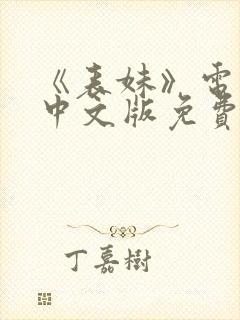 《表妹》電
中文版免費
丁嘉樹